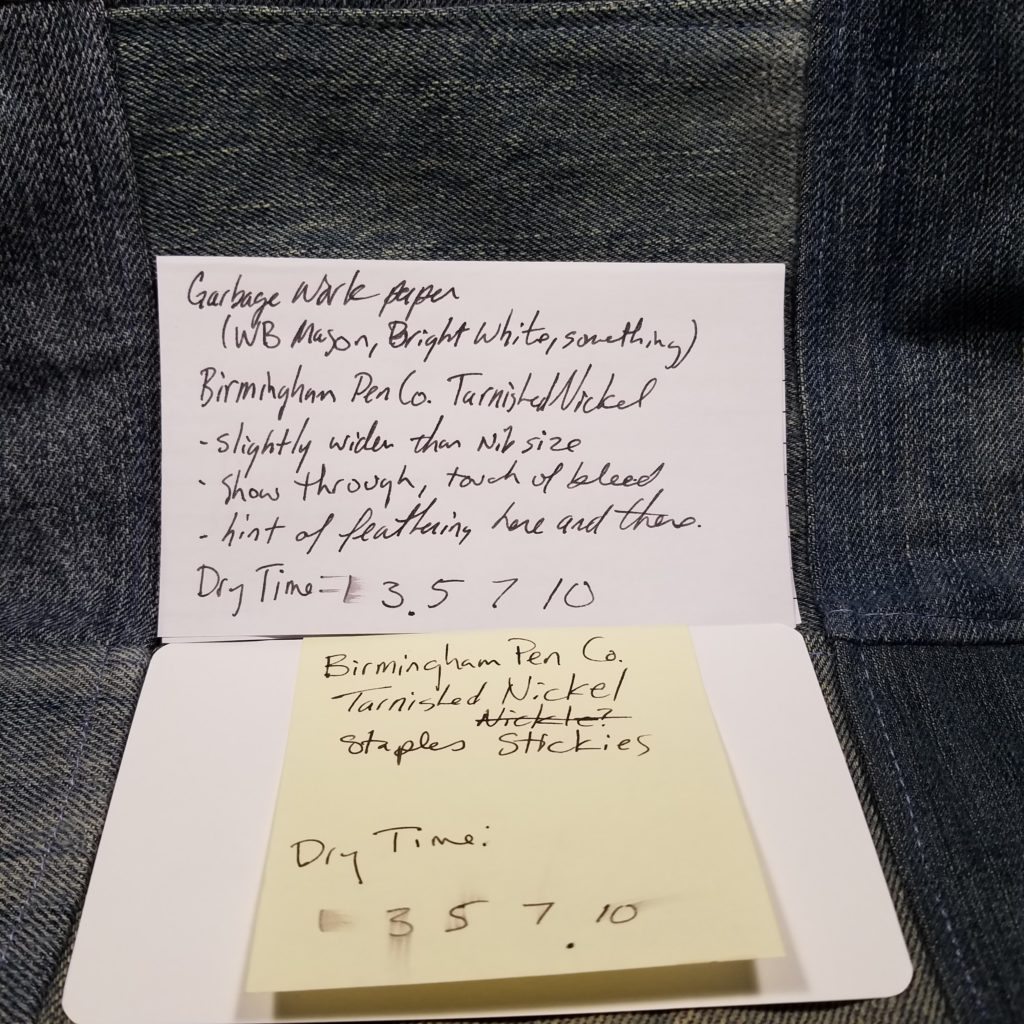 Garbage Work paper
(WB Mason, Bright White, something)
Birmingham Pen Co. Tarnished Nickel
- slightly wider than nib size
- show through, touch of bleed
- hint of feathering here and there.
Dry Time = 1 3. 5 7 10
Birmingham Pen Co.
Tarnished Nickel
Nickle?
Staples Stickies
Dry Time:
1 3 5 7. 10